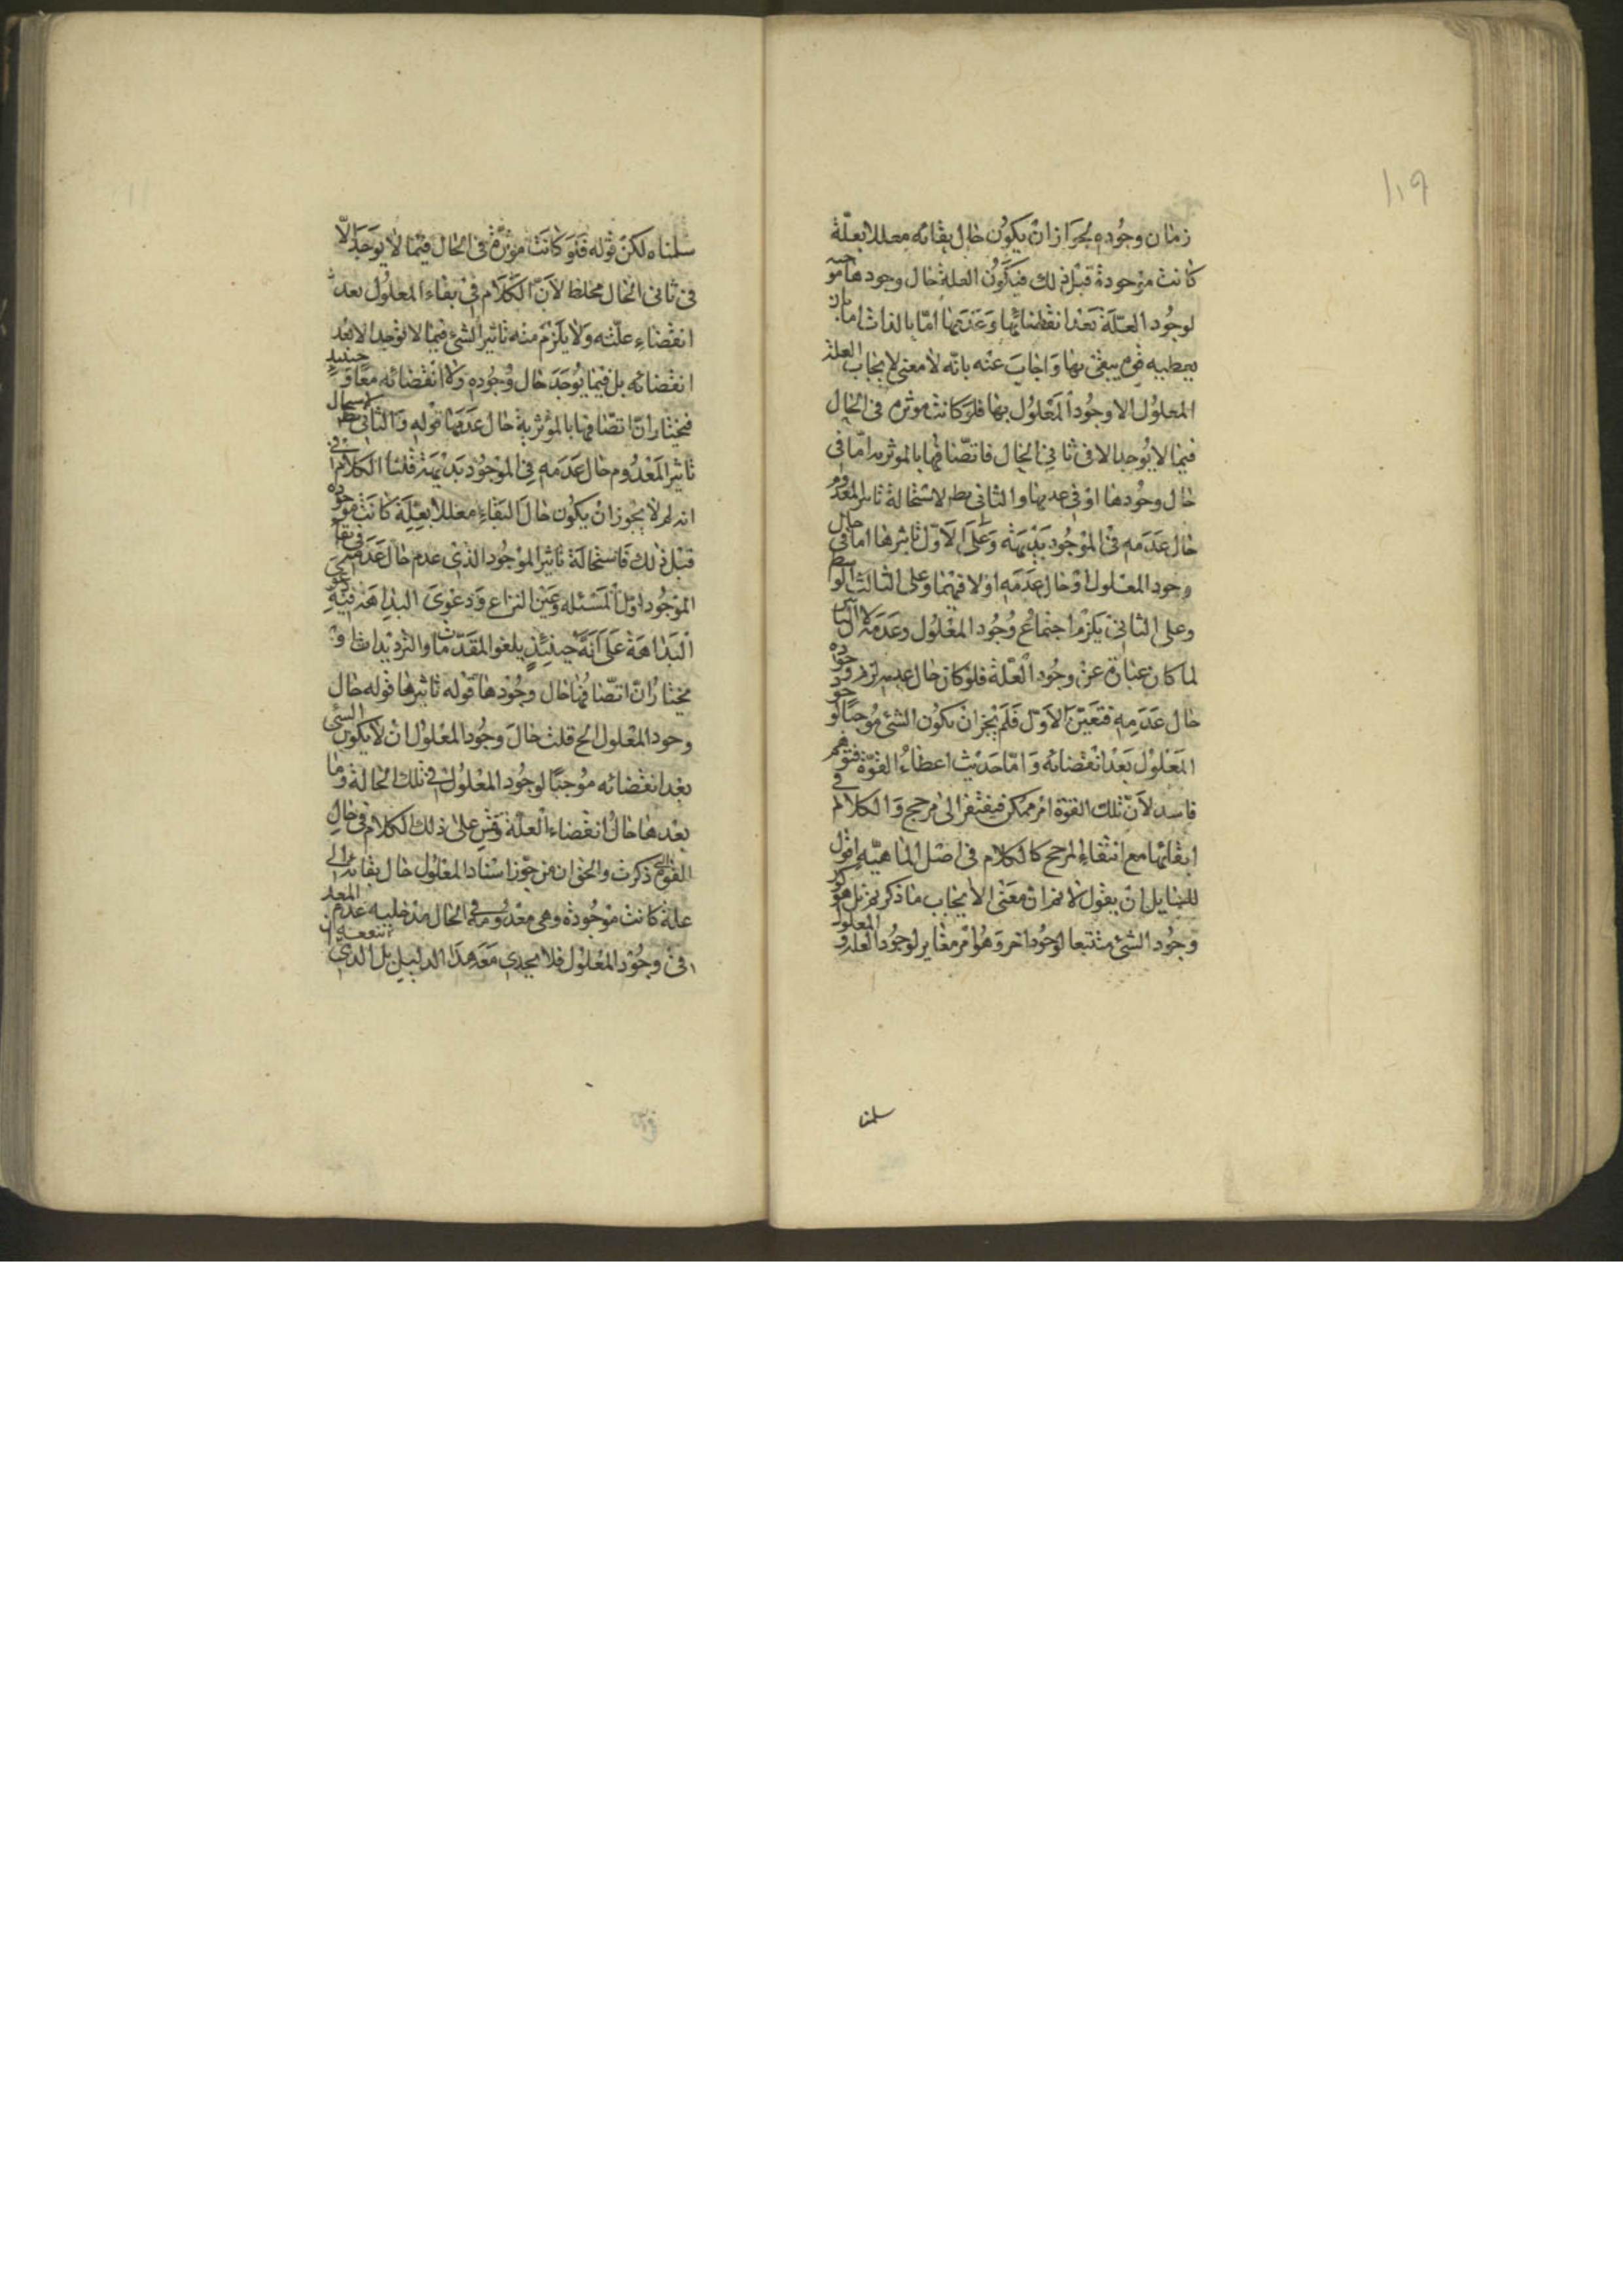 ١١٩
زمان وجوده لجواز ان يكون حال بقائه معللا بعلة
كانت موجودة قبل ذلك فيكون العلة حال وجودها موجبه
لوجود العلة بعد انقضائها وعدمها اما بالذات اما بان
يعطيه قوة يبقى بها واجاب عنه بانه لا معنى لايجاب العلة
المعلول الا وجود المعلول بها فلو كانت موثرة في الحال
فيما لا يوجد الا في ثاني الحال فاتصافها بالموثريه اما في
حال وجودها او في عدمها والثاني بط لاستحالة تاثير المعدوم
حال عدمه في الموجود بديهة وعلى الاول تاثيرها اما في حال
وجود المعلول او حال عدمه او لا فيهما وعلى الثالث الواسطه
وعلى الثاني يلزم اجتماع وجود المعلول وعدمه لان التاثير
لما كان عبارة عن وجود العلة فلو كان حال عدمه لزم وجوده
حال عدمه فتعين الاول فلم يجز ان يكون الشئ موجبا لوجود
المعلول بعد انقضائه واما حديث اعطاء القوة فتوهم
فاسد لان تلك القوة امر ممكن فيفتقر الى مرجح والكلام في
ابقائها مع انتفاء المرجح كالكلام في اصل الماهيه اقول
للقايل ان يقول لانم ان معنى الايجاب ما ذكرتم بل هو كون
وجود الشئ مستتبعا لوجود اخر وهو امر مغاير لوجود العله و المعلول
سلمنا
سلمناه لكن قوله فلو كانت موثرة في الحال فيما لا يوجد الا
في ثاني الحال مخلط لان الكلام في بقاء المعلول بعد
انقضاء علته ولا يلزم منه تاثير الشئ فيما لا يوجد الا بعد
انقضائه بل فيما يوجد حال وجوده ولا انقضائه معا وحينئذ
فيختار ان اتصافها بالمؤثرية حال عدمها قوله والثاني بط لاستحاله
تاثير المعدوم حال عدمه في الموجود بديهة قلنا الكلام في
انه لم لا يجوز ان يكون حال البقاء معللا بعلة كانت موجوده
قبل ذلك فاستحالة تاثير الموجود الذي عدم حال عدمه في بقاء
الموجود اول المسئله وعين النزاع ودعوى البداهة فيه دعوى
البداهة على انه حينئذ يلغو المقدمات والترديدات او
يختار ان اتصافها حال وجودها قوله تاثيرها قوله حال
وجود المعلول الخ قلت حال وجود المعلول ان لا يكون الشئ
بعد انقضائه موجبا لوجود المعلول في تلك الحالة وما
بعدها حال انقضاء العلة وقس على ذلك الكلام في حال
القوة التي ذكرت والحق ان من جوز اسناد المعلول حال بقائه الى
علة كانت موجودة وهي معدومة في الحال مدخليه عدم المعد
في وجود المعلول فلا يجدي معه هذا الدليل بل الذي ينفعه ان